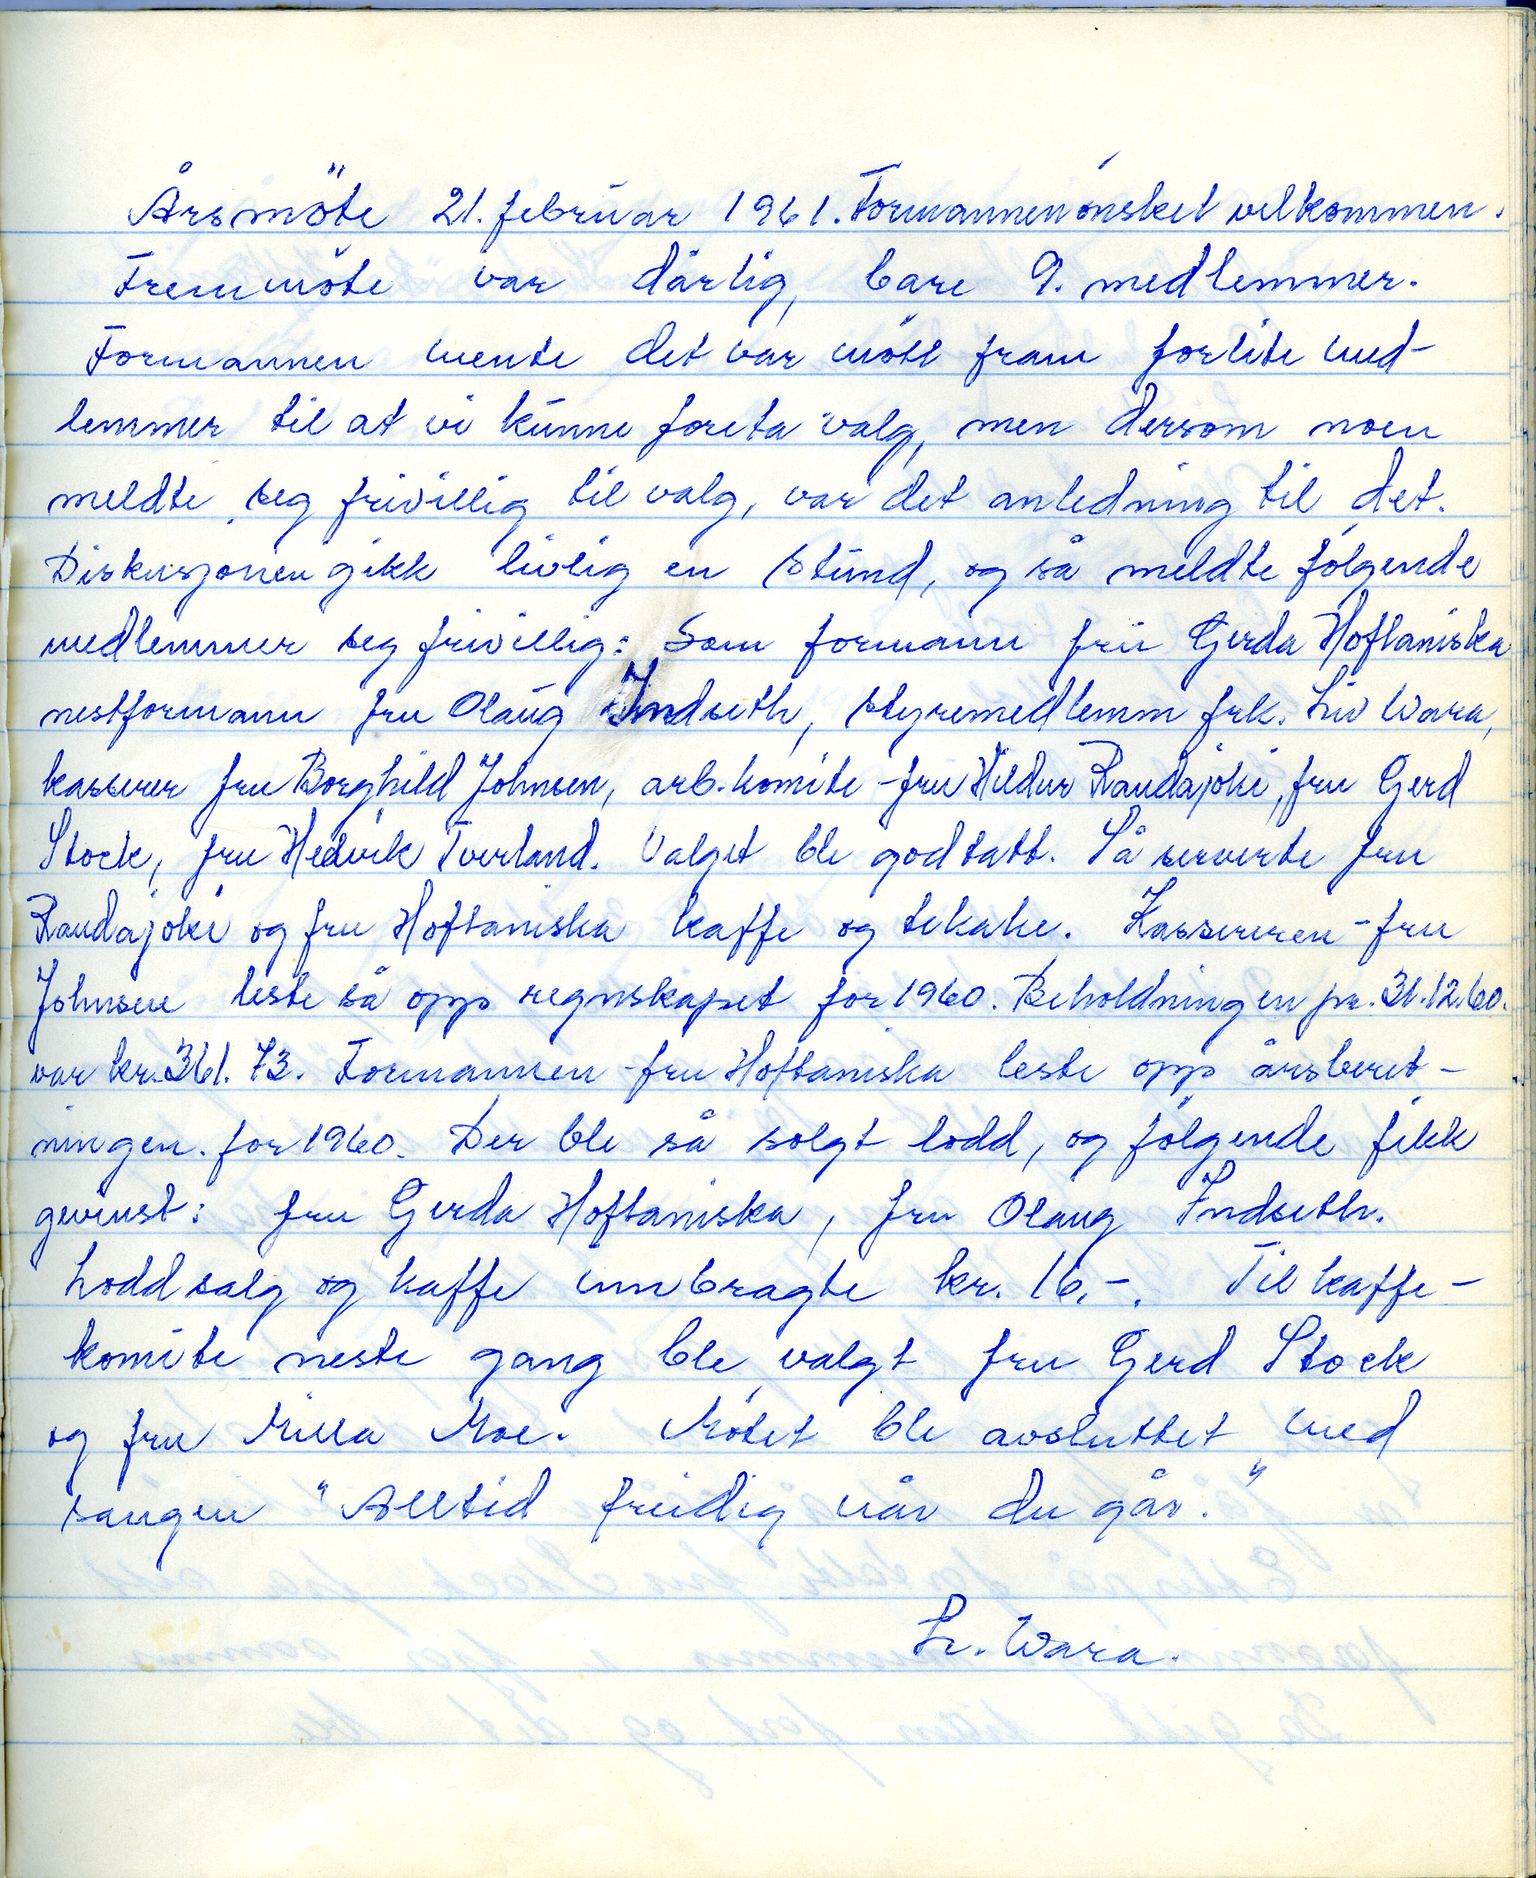 Årsmöte 21. februar 1961. Formannen ønsket velkommen.
Fremmöte var dårlig, bare 9. medlemmer.
Formannen mente det var mött fram forlite med-
lemmer til at vi kunne foreta valg, men dersom noen
meldte seg frivillig til valg, var det anledning til det.
Diskusjonen gikk livlig en stund, og så meldte følgende
medlemmer seg frivillig: Som formann fru Gerda Hoftaniska
nestformann fru Olaug Indseth, styremedlemm frk. Liv Wara,
kasserer fru Borghild Johnsen, arb. komite - fru Hildur Raudajoki, fru Gerd
Stock, fru Hedvik Tverland. Valget ble godtatt. Så serverte fru
Raudajoki og fru Hoftaniska kaffe og tekake. Kassereren - fru
Johnsen leste så opp regnskapet for 1960. Beholdningen pr. 31.12.60.
var kr. 361.73. Formannen - fru Hoftaniska leste opp årsberet-
ningen. for 1960. Der ble så solgt lodd, og følgende fikk
gevinst: fru Gerda Hoftaniska, fru Olaug Indseth.
Loddsalg og kaffe innbragte kr. 16,-. Til kaffe-
komite neste gang ble valgt fru Gerd Stock
og fru Milla Moe. Møtet ble avsluttet med
sangen "Alltid freidig når du går."
L. Wara.